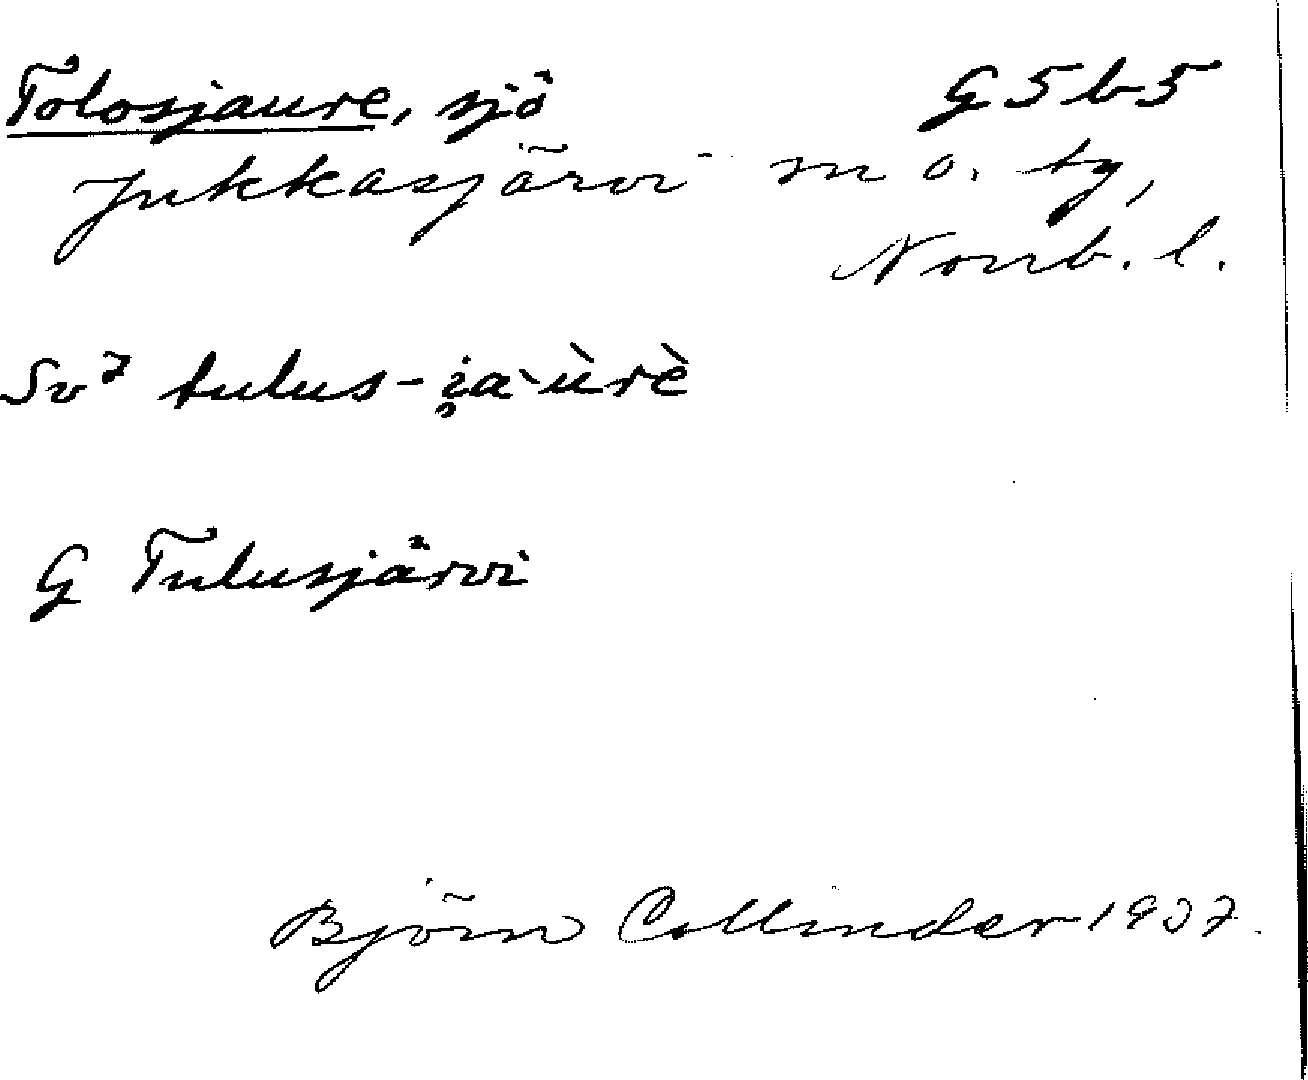 Tolosjaure, sjö G5b5
Jukkasjärvi sn o. tg,
Norrb. l.
Sv⁷ tulus-i̯a`ùrè
G Tulusjärvi
Björn Collinder 1937.